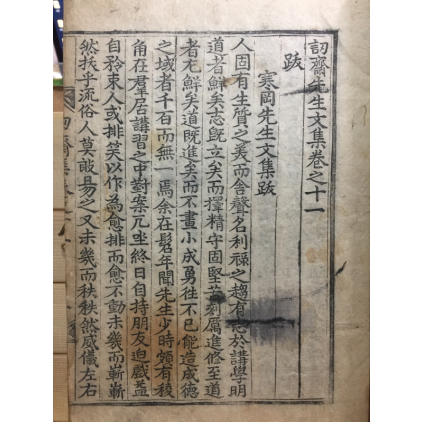 訒齋先生文集卷之十一
跋
寒岡先生文集跋
人固有生質之美而舍聲名利祿之趨有志於講學明
道者鮮矣志旣立矣而擇精守固堅苦刻厲進修至道
者尤鮮矣道旣進矣而不畫小成勇往不已能造成德
之域者千百而無一焉余在髫年聞先生少時頗有稜
角在羣居講習之中對案兀坐終日自持朋友迫戲益
自矜束人或排笑以作為愈排而愈不動未幾而嶄嶄
然扶乎流俗人莫敢易之又未幾而秩秩然威儀左右